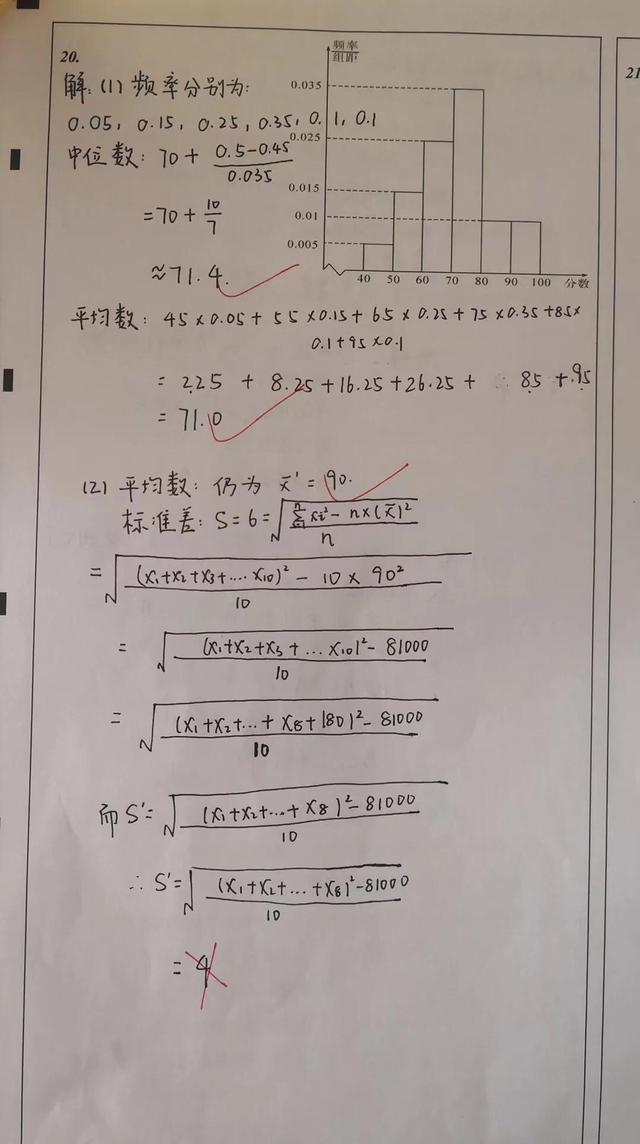 20.
解:(1)频率分别为:
0.05, 0.15, 0.25, 0.35, 0.1, 0.1
中位数: 70 + (0.5-0.45)/0.035
=70+ 10/7
≈71.4.
频率/组距
0.035
0.025
0.015
0.01
0.005
40 50 60 70 80 90 100 分数
平均数: 45×0.05+55×0.15+65×0.25+75×0.35+85×
0.1+95×0.1
= 2.25 + 8.25+16.25+26.25+ 8.5 +9.5
= 71.0
(2) 平均数: 仍为 x̄' = 90.
标准差: S=6=√((Σxi²-n×(x̄)²)/n)
=√(((x₁+x₂+x₃+....x₁₀)²-10×90²)/10)
=√(((x₁+x₂+x₃+...x₁₀)²-81000)/10)
=√(((x₁+x₂+...+x₈+180)²-81000)/10)
而S'=√(((x₁+x₂+...+x₈)²-81000)/10)
∴S'=√(((x₁+x₂+...+x₈)²-81000)/10)
= 4
21